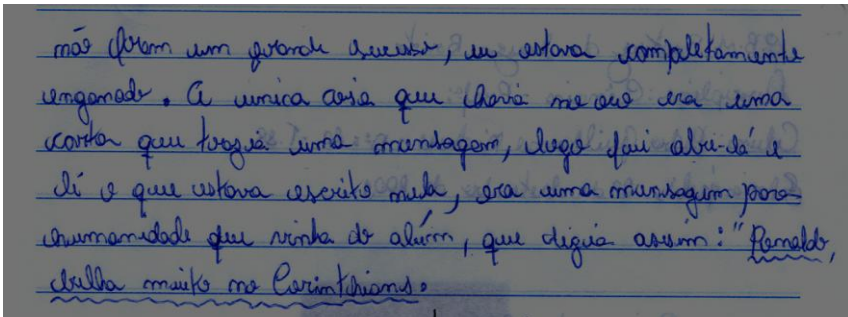 não foram um grande sucesso, eu estava completamente
enganado. A unica coisa que havia no ovo era uma
carta que trazia uma mensagem, logo fui abri-lá e
li o que estava escrito nela, era uma mensagem para
humanidade que vinha do além, que dizia assim: "Ronaldo,
brilha muito no Corinthians.